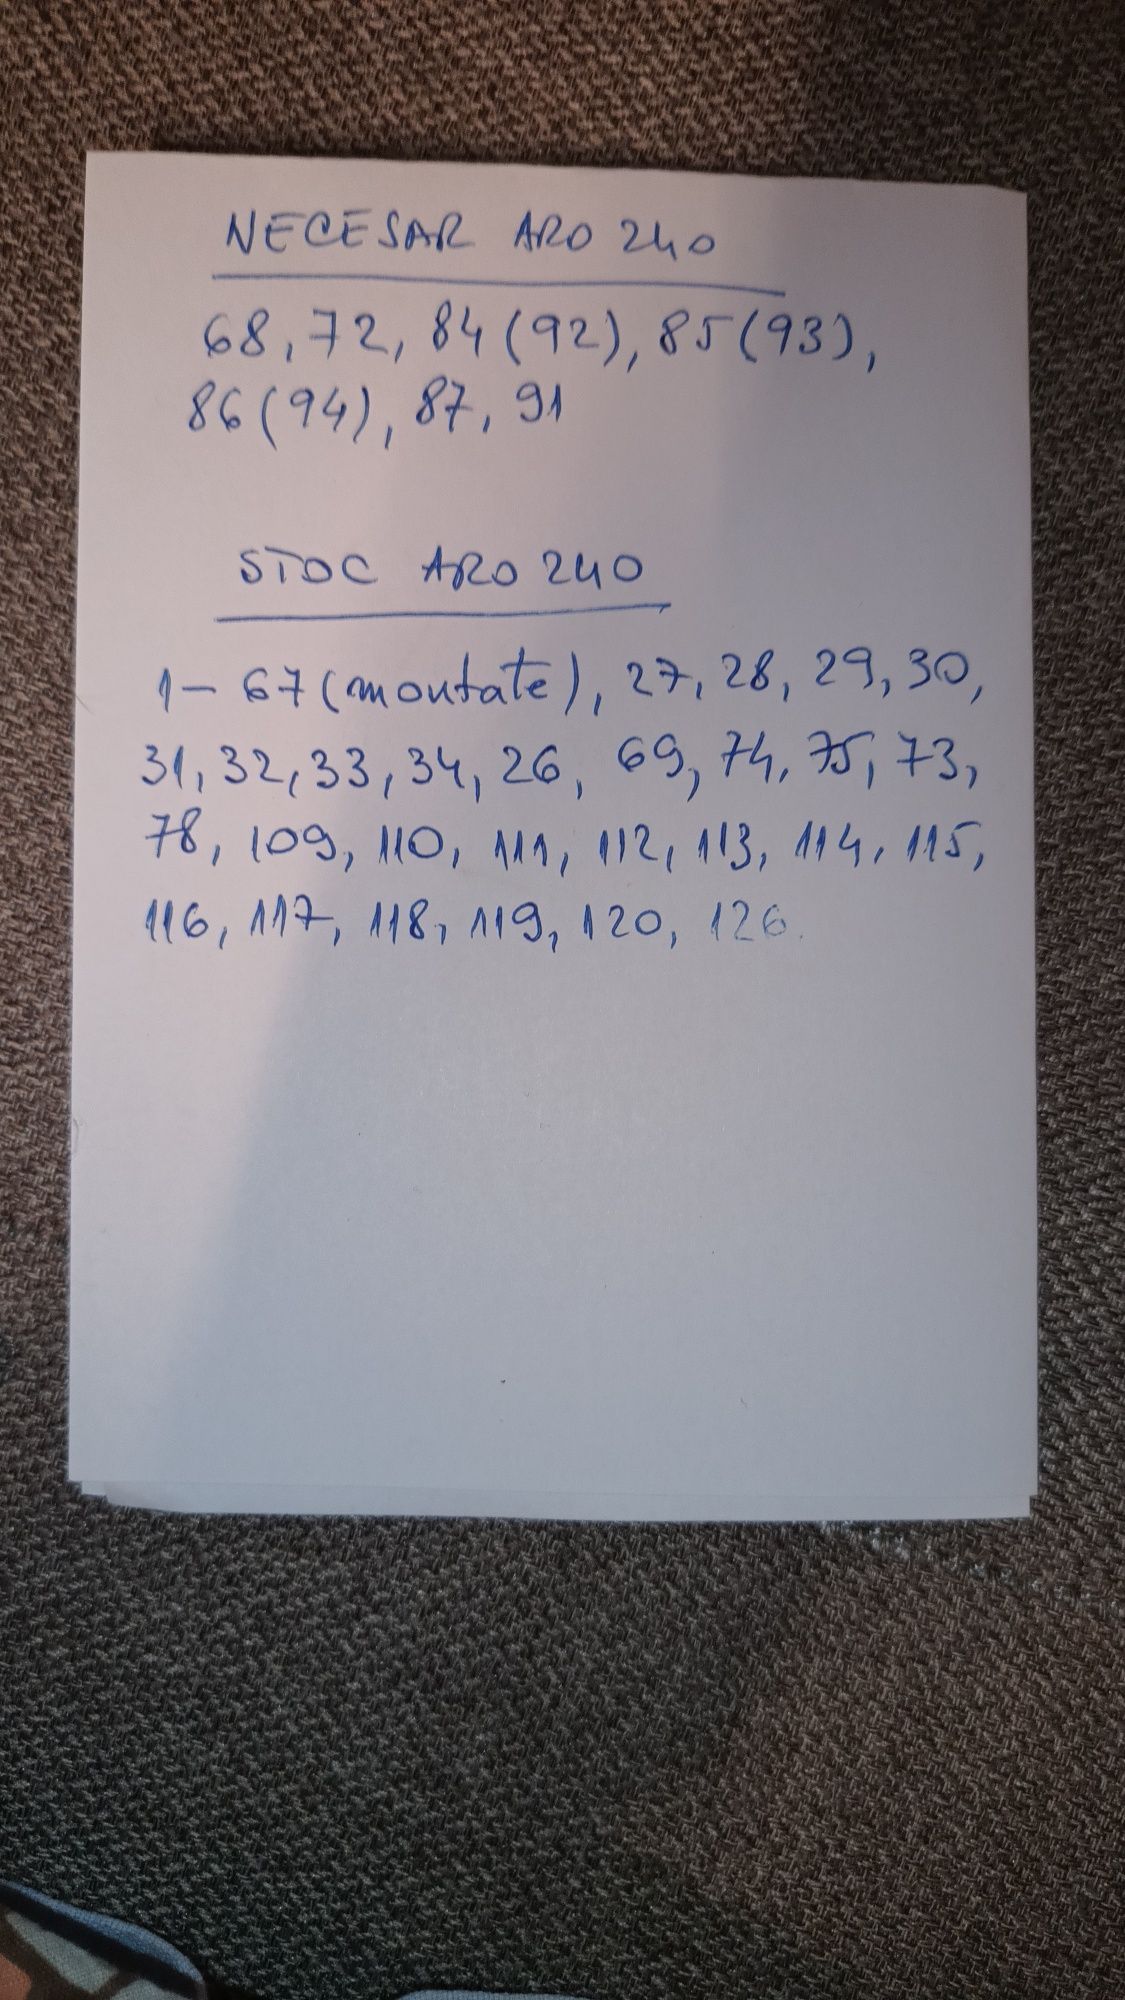 NECESAR ARO 240
68, 72, 84 (92), 85 (93),
86 (94), 87, 91
STOC ARO 240
1 - 67 (montate), 27, 28, 29, 30,
31, 32, 33, 34, 26, 69, 74, 75, 73,
78, 109, 110, 111, 112, 113, 114, 115,
116, 117, 118, 119, 120, 126.